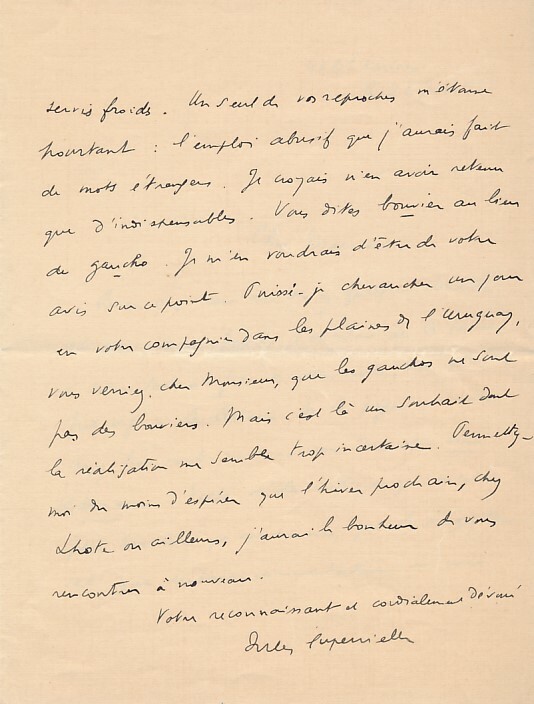 servis froids. Un seul de vos reproches m'étonne
pourtant : l'emploi abusif que j'aurais fait
de mots étrangers. Je croyais n'en avoir retenu
que d'indispensables. Vous dites bouvier au lieu
de gaucho. Je m'en voudrais d'être de votre
avis sur ce point. Puissé-je chevaucher un jour
en votre compagnie dans les plaines de l'Uruguay,
vous verriez, cher Monsieur, que les gauchos ne sont
pas des bouviers. Mais c'est là un souhait dont
la réalisation me semble trop incertaine. Permettez-
moi du moins d'espérer que l'hiver prochain, chez
Lhote ou ailleurs, j'aurai le bonheur de vous
rencontrer à nouveau.
Votre reconnaissant et cordialement dévoué
Jules Supervielle